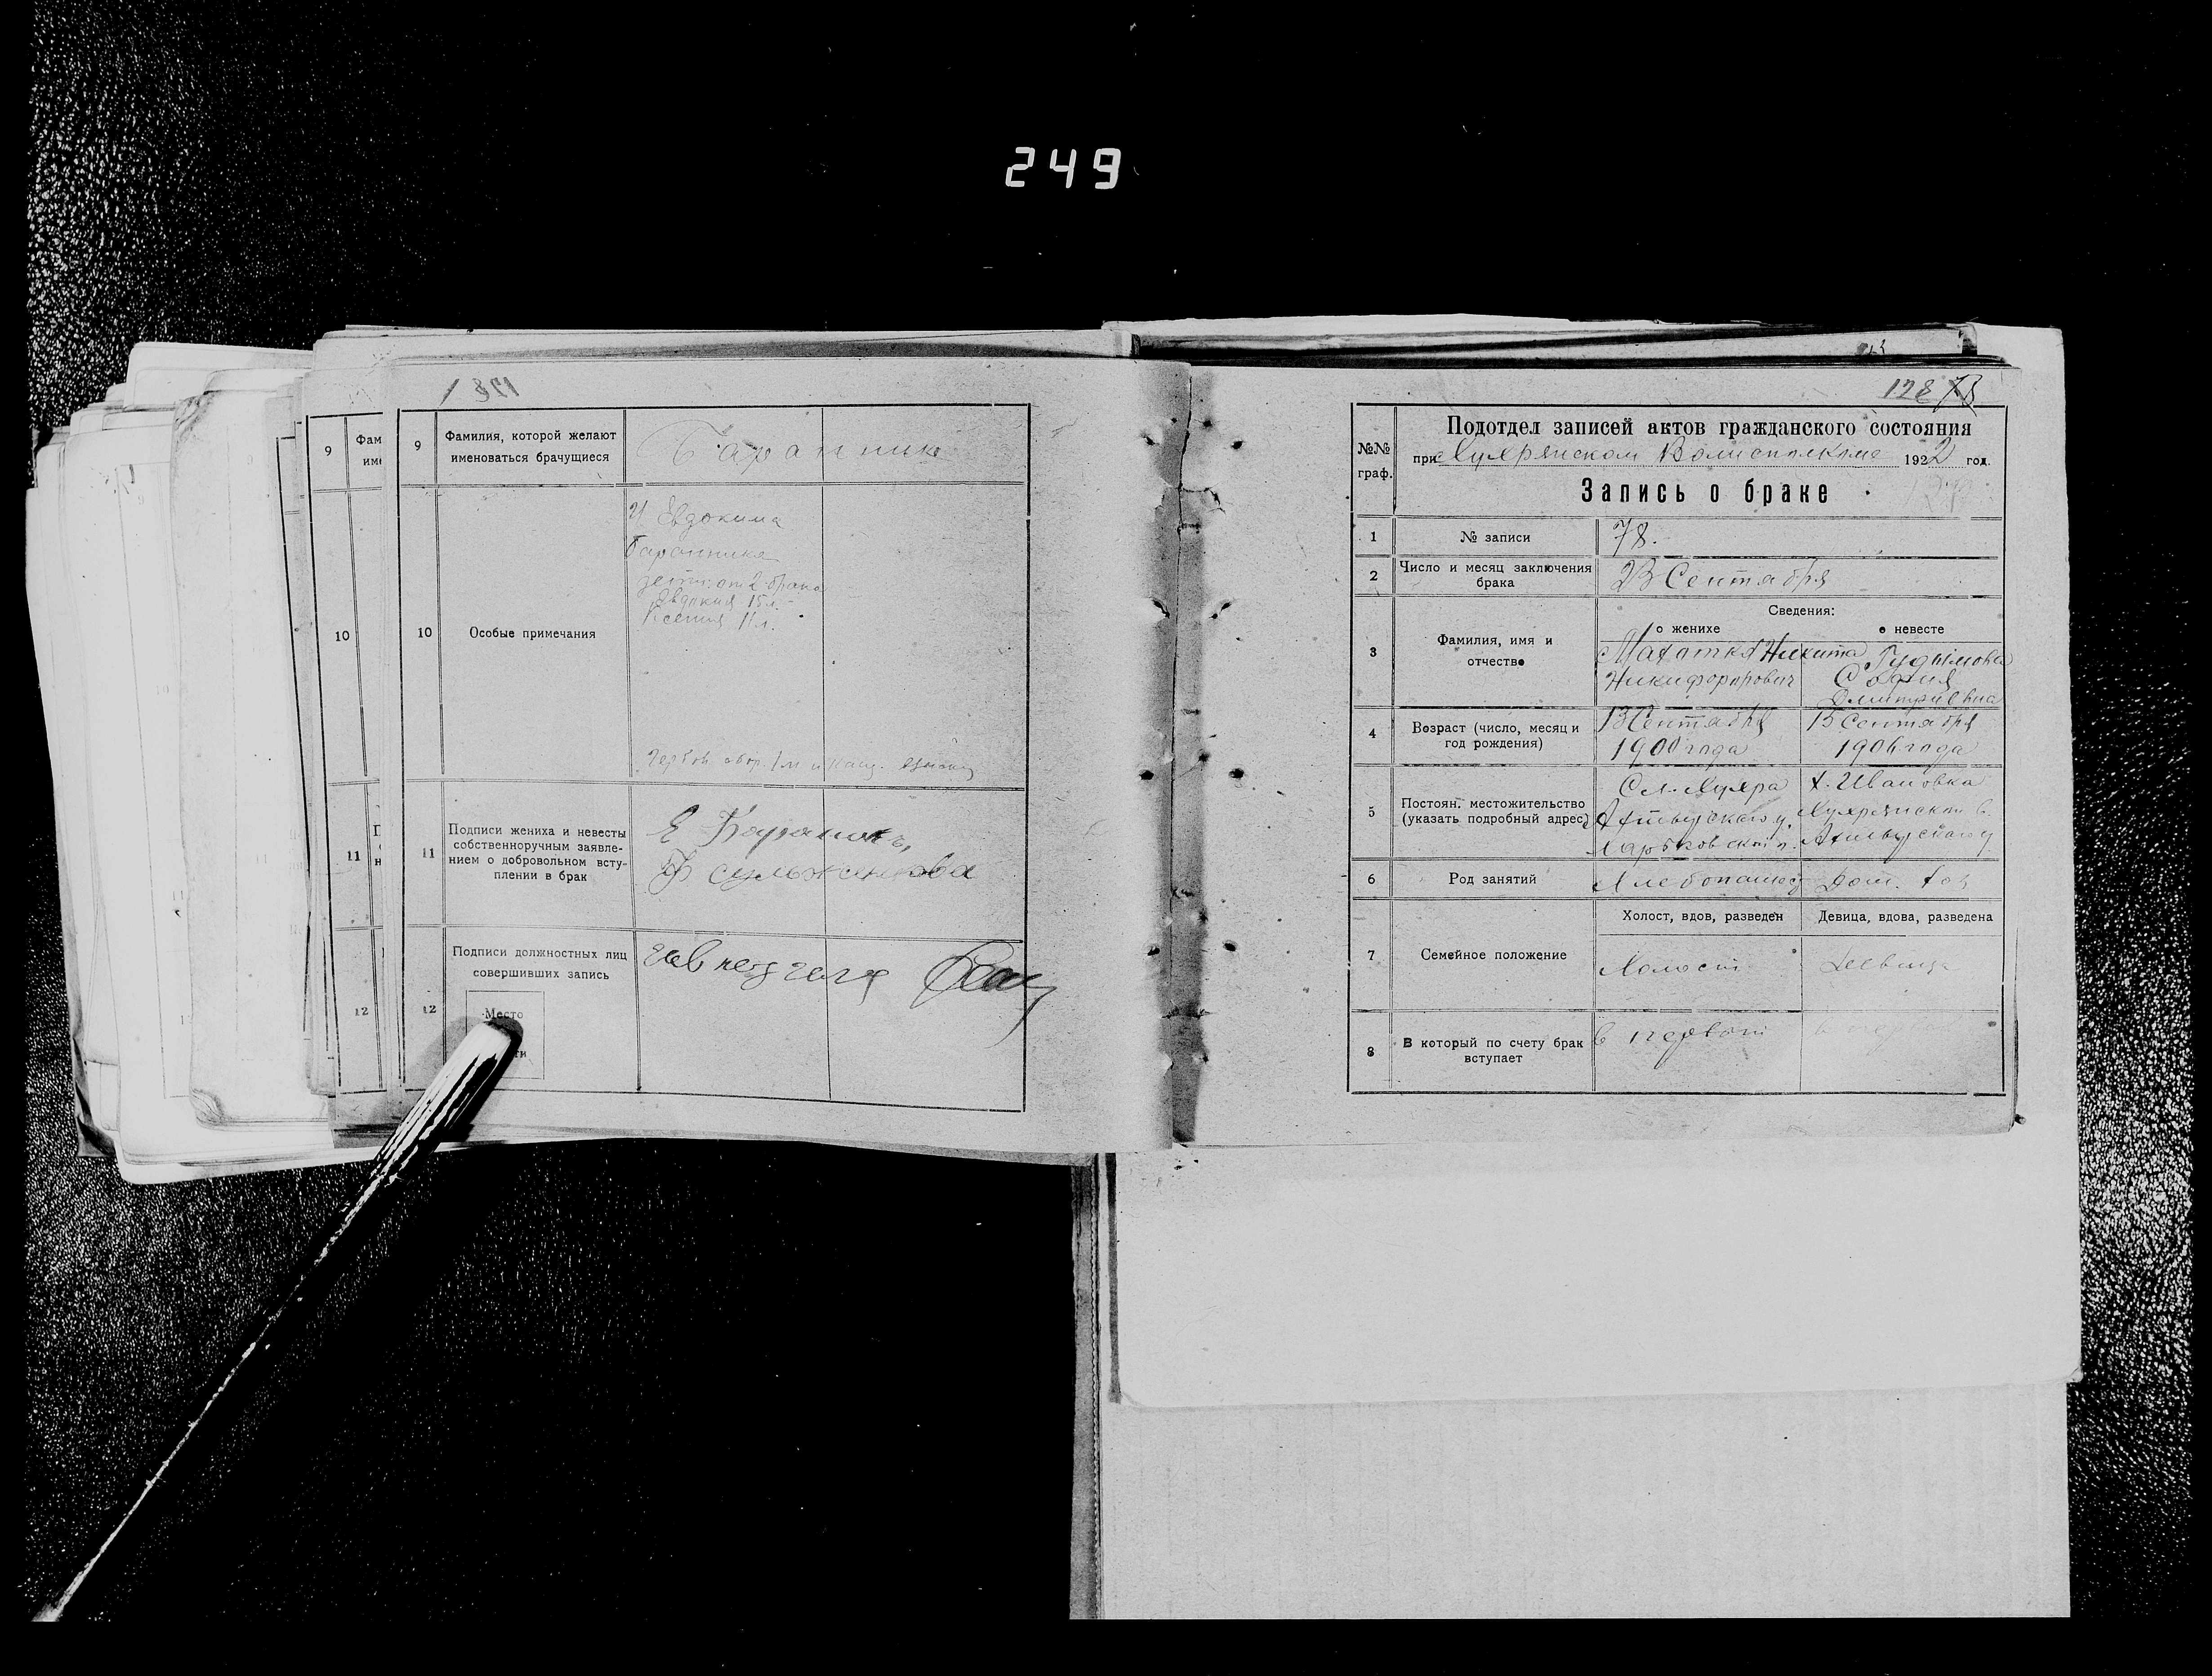 249
9
Фам
имє
10
11
12
9
Фамилия, которой желают
именоваться брачущиеся
Баранник
10
Особые примечания
У Евдокима
Баранника
дети: от 2 брака
Евдокия 15 л.
Ксения 11 л.
11
Подписи жениха и невесты
собственноручным заявле-
нием о добровольном всту-
плении в брак
Е Бараникъ,
12
Подписи должностных лиц
совершивших запись
Место
128
№№
граф.
Подотдел записей актов гражданского состояния
при Хухрянском Волисполкоме 1922 год.
Запись о браке
1
№ записи
78.
2
Число и месяц заключения
брака
23 Сентября
3
Фамилия, имя и
отчество
Сведения:
о женихе
о невесте
Махотка Никита
Никифорович
Гудымова
София
Дмитриевна
4
Возраст (число, месяц и
год рождения)
13 Сентября
1900 года
15 Сентября
1906 года
5
Постоян. местожительство
(указать подробный адрес)
Сл. Хухра
Ахтырского у.
Харьковской г.
Х. Ивановка
Хухрянской в.
Ахтырского у
6
Род занятий
Хлебопашец
Дом. хоз
7
Семейное положение
Холост, вдов, разведен
Девица, вдова, разведена
Холост
Девица
8
В который по счету брак
вступает
в первой